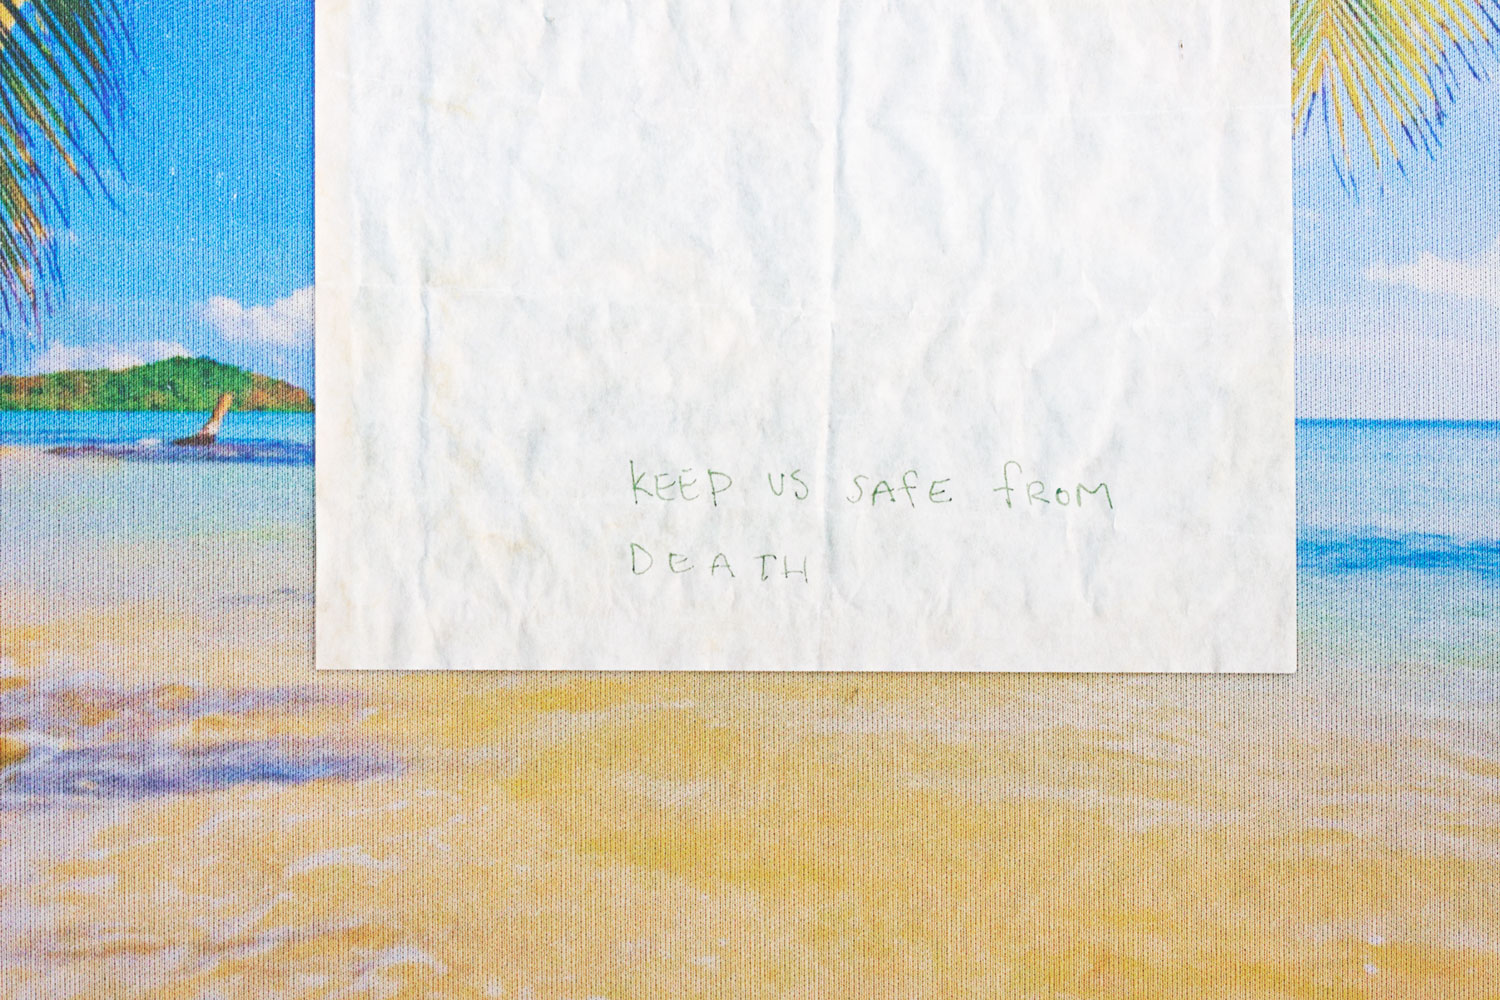 KEEP US SAfE fROM
DEATH